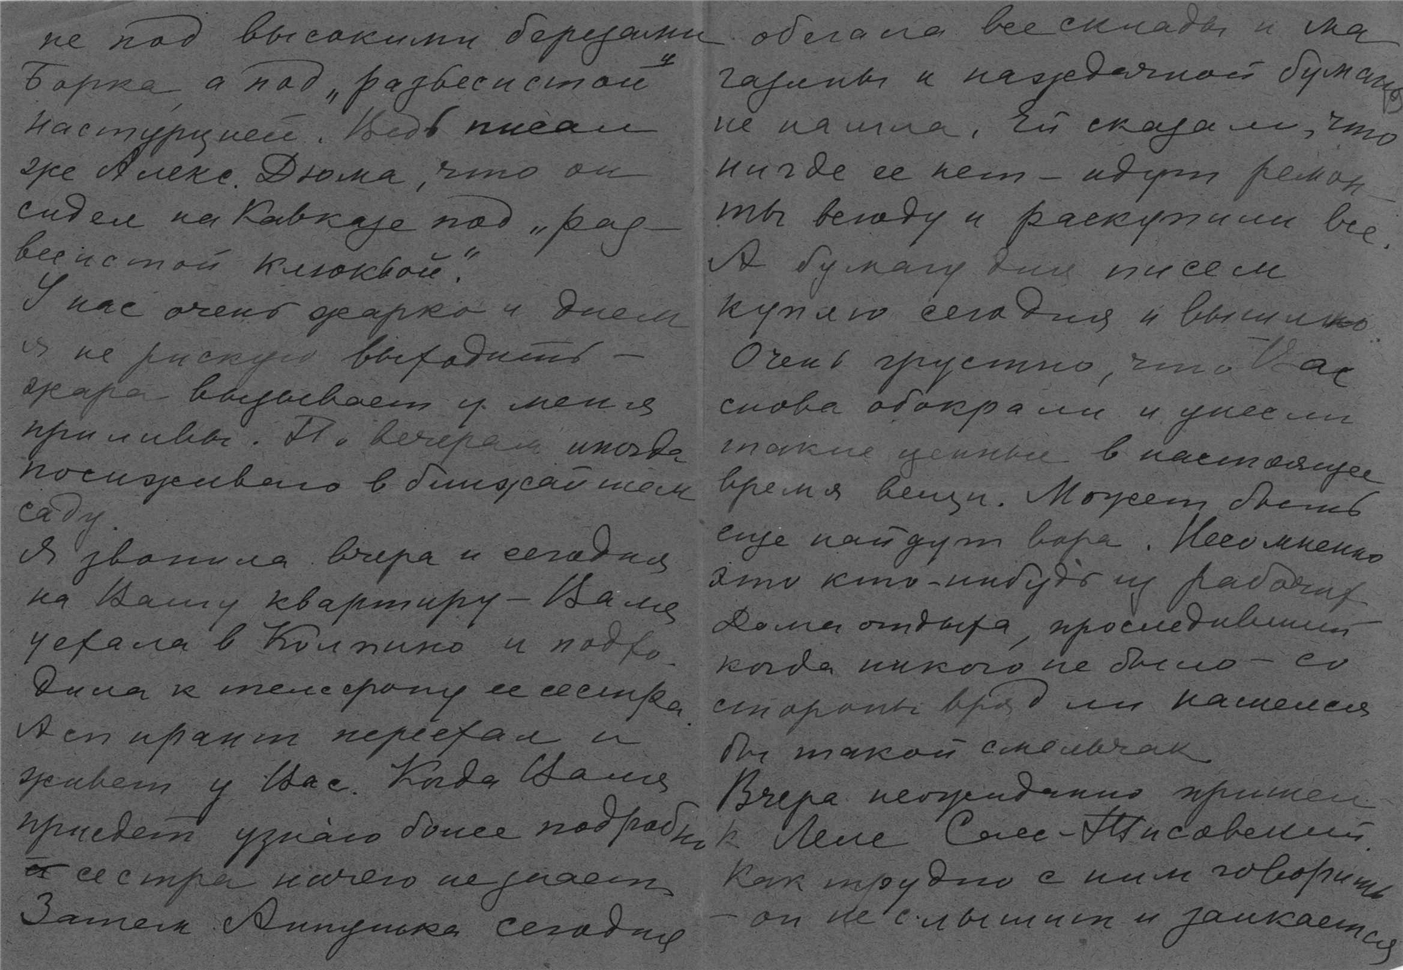 не под высокими березами
Борка, а под „развесистой"
настурцией. Ведь писал
же Алекс. Дюма, что он
сидел на Кавказе под „раз-
весистой клюквой".
У нас очень жарко и днем
я не рискую выходить –
жара вызывает у меня
приливы. По вечерам иногда
посиживаю в ближайшем
саду.
Я звонила вчера и сегодня
на Вашу квартиру – Валя
уехала в Колпино и подхо-
дила к телефону ее сестра.
Аспирант переехал и
живет у Вас. Когда Валя
приедет узнаю более подробно
сестра ничего не знает
Затем Аннушка сегодня
обегала все склады и ма
газины и наждачной бумаги
не нашла. Ей сказали, что
нигде ее нет – идут ремон
ты всюду и раскупили все.
А бумагу для писем
куплю сегодня и вышлю.
Очень грустно, что Вас
снова обокрали и унесли
такие ценные в настоящее
время вещи. Может быть
еще найдут вора. Несомненно
это кто-нибудь из рабочих
Дома отдыха, проследивший
когда никого не было – со
стороны вряд ли нашелся
бы такой смельчак
Вчера неожиданно пришел
к Леле Писовский.
Как трудно с ним говорить
– он не слышит и заикается